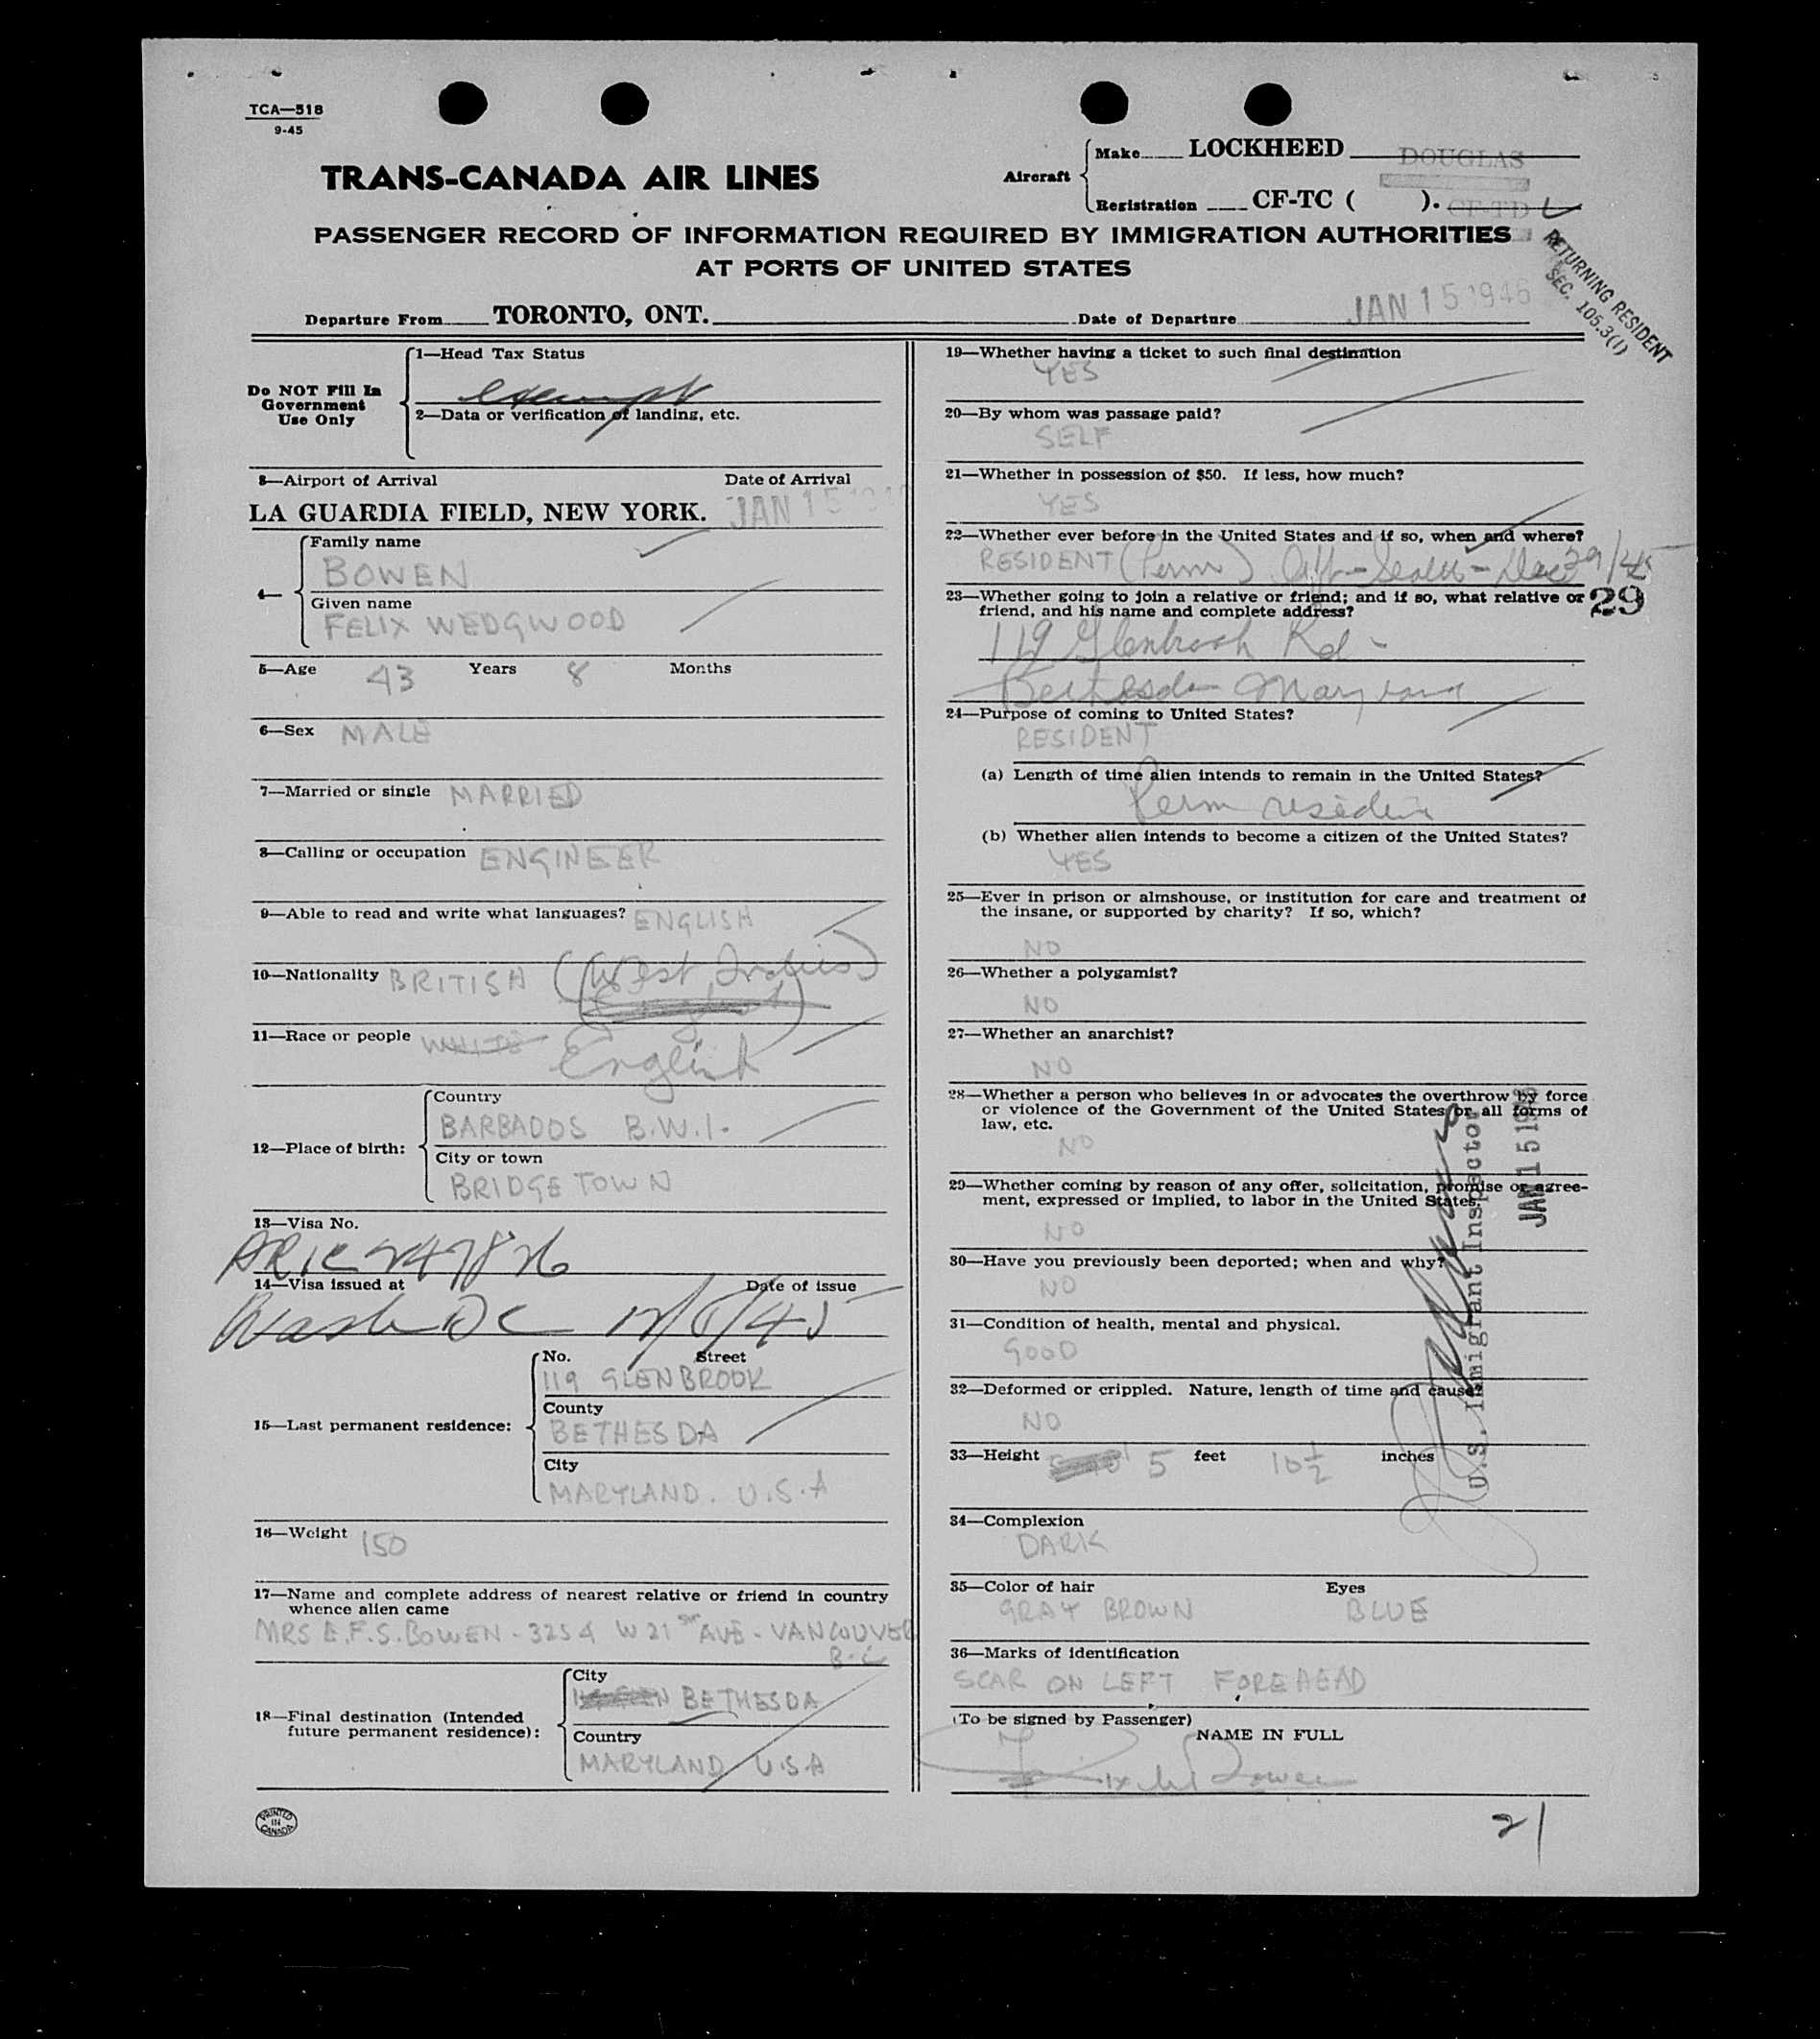 TCA—518
9-45
TRANS-CANADA AIR LINES
Aircraft
Make LOCKHEED DOUGLAS
Registration CF-TC ( ). CF-TD
PASSENGER RECORD OF INFORMATION REQUIRED BY IMMIGRATION AUTHORITIES
AT PORTS OF UNITED STATES
RETURNING RESIDENT
SEC. 105.3(1)
Departure From TORONTO, ONT. Date of Departure JAN 15 1946
Do NOT Fill In
Government
Use Only
1—Head Tax Status
exempt
2—Data or verification of landing, etc.
3—Airport of Arrival Date of Arrival
LA GUARDIA FIELD, NEW YORK. JAN 15 194
4—
Family name
BOWEN
Given name
FELIX WEDGWOOD
5—Age 43 Years 8 Months
6—Sex MALE
7—Married or single MARRIED
8—Calling or occupation ENGINEER
9—Able to read and write what languages? ENGLISH
10—Nationality BRITISH (West Indies)
11—Race or people WHITE English
12—Place of birth:
Country
BARBADOS B.W.I.
City or town
BRIDGETOWN
13—Visa No.
14—Visa issued at Date of issue
Wash DC
15—Last permanent residence:
No. Street
119 GLENBROOK
County
BETHESDA
City
MARYLAND. U.S.A
16—Weight 150
17—Name and complete address of nearest relative or friend in country
whence alien came
MRS E.F.S. BOWEN - 3254 W 21ST AVE - VANCOUVER
B.C
18—Final destination (Intended
future permanent residence):
City
BETHESDA
Country
MARYLAND U.S.A
PRINTED
IN
CANADA
19—Whether having a ticket to such final destination
YES
20—By whom was passage paid?
SELF
21—Whether in possession of $50. If less, how much?
YES
22—Whether ever before in the United States and if so, when and where?
RESIDENT (Perm) Dec 29/45
23—Whether going to join a relative or friend; and if so, what relative or
friend, and his name and complete address?
29
119 Glenbrook Rd -
Bethesda Maryland
24—Purpose of coming to United States?
RESIDENT
(a) Length of time alien intends to remain in the United States?
Perm
(b) Whether alien intends to become a citizen of the United States?
YES
25—Ever in prison or almshouse, or institution for care and treatment of
the insane, or supported by charity? If so, which?
NO
26—Whether a polygamist?
NO
27—Whether an anarchist?
NO
28—Whether a person who believes in or advocates the overthrow by force
or violence of the Government of the United States or all forms of
law, etc.
NO
29—Whether coming by reason of any offer, solicitation, promise or agree-
ment, expressed or implied, to labor in the United States.
NO
30—Have you previously been deported; when and why?
NO
31—Condition of health, mental and physical.
GOOD
32—Deformed or crippled. Nature, length of time and cause?
NO
33—Height 5 feet 10 1/2 inches
U.S. Immigrant Inspector
JAN 15 1946
34—Complexion
DARK
35—Color of hair Eyes
GRAY BROWN BLUE
36—Marks of identification
SCAR ON LEFT FOREHEAD
(To be signed by Passenger)
NAME IN FULL
Felix W Bowen
21